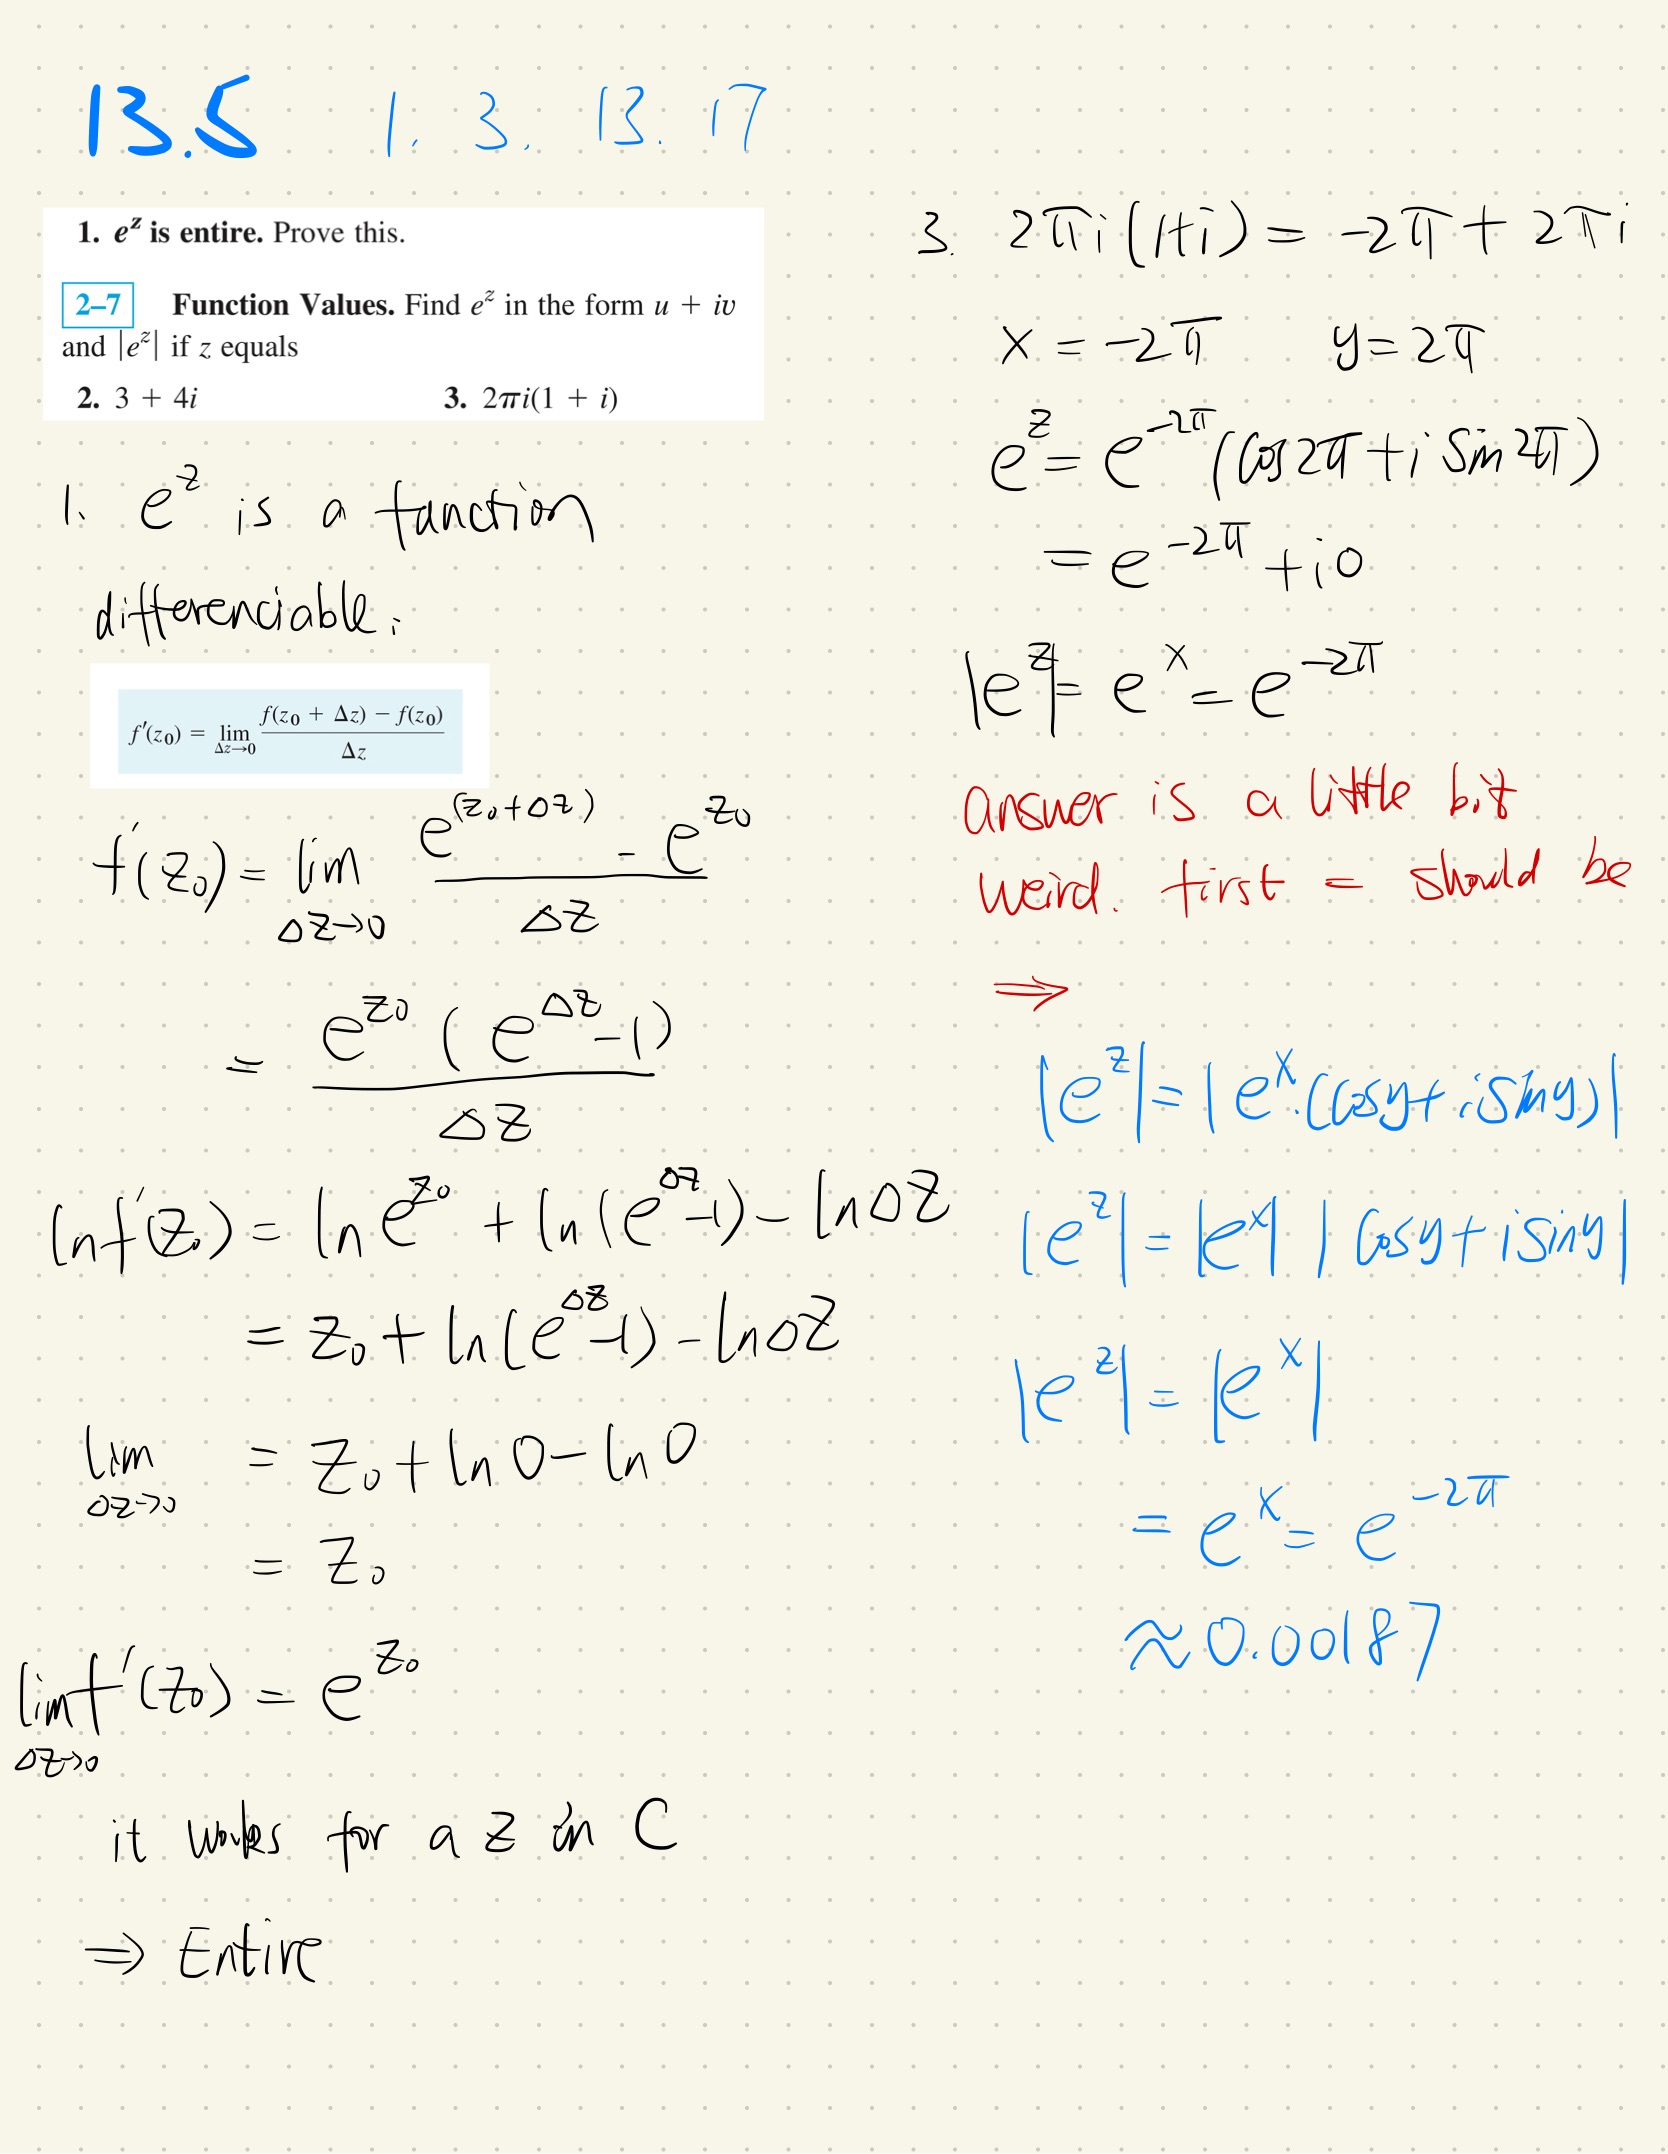 13.5 1. 3. 13. 17
1. e^z is entire. Prove this.
2–7 Function Values. Find e^z in the form u + iv
and |e^z| if z equals
2. 3 + 4i 3. 2πi(1 + i)
1. e^z is a function
differenciable.
f'(z₀) = lim_{Δz→0} (f(z₀ + Δz) − f(z₀))/Δz
f'(z₀) = lim_{Δz→0} (e^(z₀+Δz) - e^z₀)/Δz
= e^z₀ (e^Δz - 1)/Δz
ln f'(z₀) = ln e^z₀ + ln(e^Δz - 1) - ln Δz
= z₀ + ln(e^Δz - 1) - ln Δz
lim_{Δz→0} = z₀ + ln 0 - ln 0
= z₀
lim_{Δz→0} f'(z₀) = e^z₀
it works for a z in C
⇒ Entire
3. 2πi(1+i) = -2π + 2πi
x = -2π y = 2π
e^z = e^-2π (cos 2π + i sin 2π)
= e^-2π + i0
|e^z| = e^x = e^-2π
answer is a little bit
weird. first = should be
⇒
|e^z| = |e^x.(cosy + isiny)|
|e^z| = |e^x| | cosy + isiny|
|e^z| = |e^x|
= e^x = e^-2π
≈ 0.00187